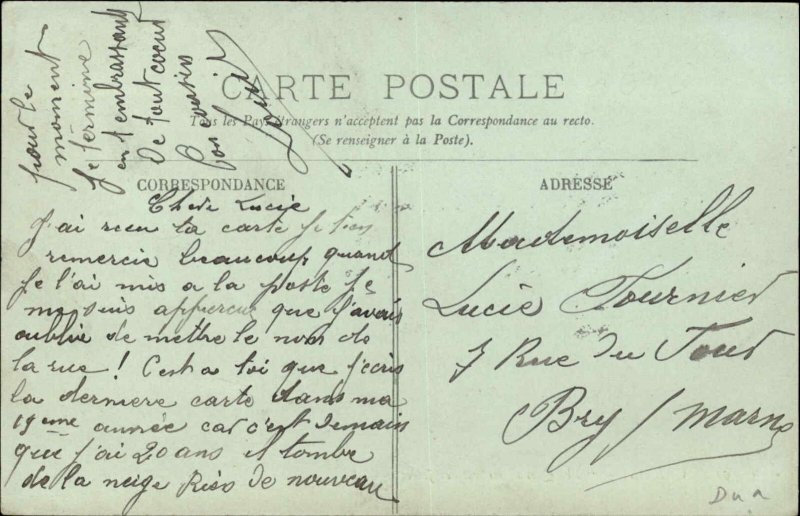 CARTE POSTALE
Tous les Pays étrangers n'acceptent pas la Correspondance au recto.
(Se renseigner à la Poste).
CORRESPONDANCE
Chere Lucie
J'ai recu ta carte je t'en
remercie beaucoup quand
je l'ai mis a la poste je
me suis appercu que j'avais
oublié de mettre le nom de
la rue ! C'est a toi que j'ecris
la derniere carte dans ma
19eme année car c'est demain
que j'ai 20 ans il tombe
de la neige Rien de nouveau
pour le
moment
Je termine
en t'embrassant
de tout coeur
Ton cousin
Louis
ADRESSE
Mademoiselle
Lucie Fournier
7 Rue du Four
Bry / Marne